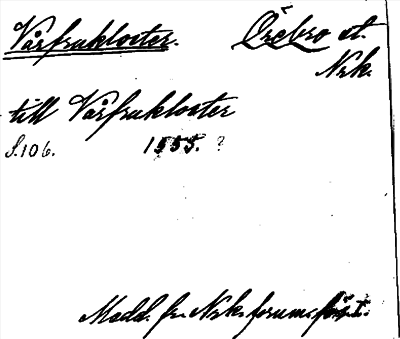 Vårfrukloster. Örebro st.
Nrk.
till Vårfrukloster
S.106. 1555. ?
Medd. fr. Nrk. fornm. fören.